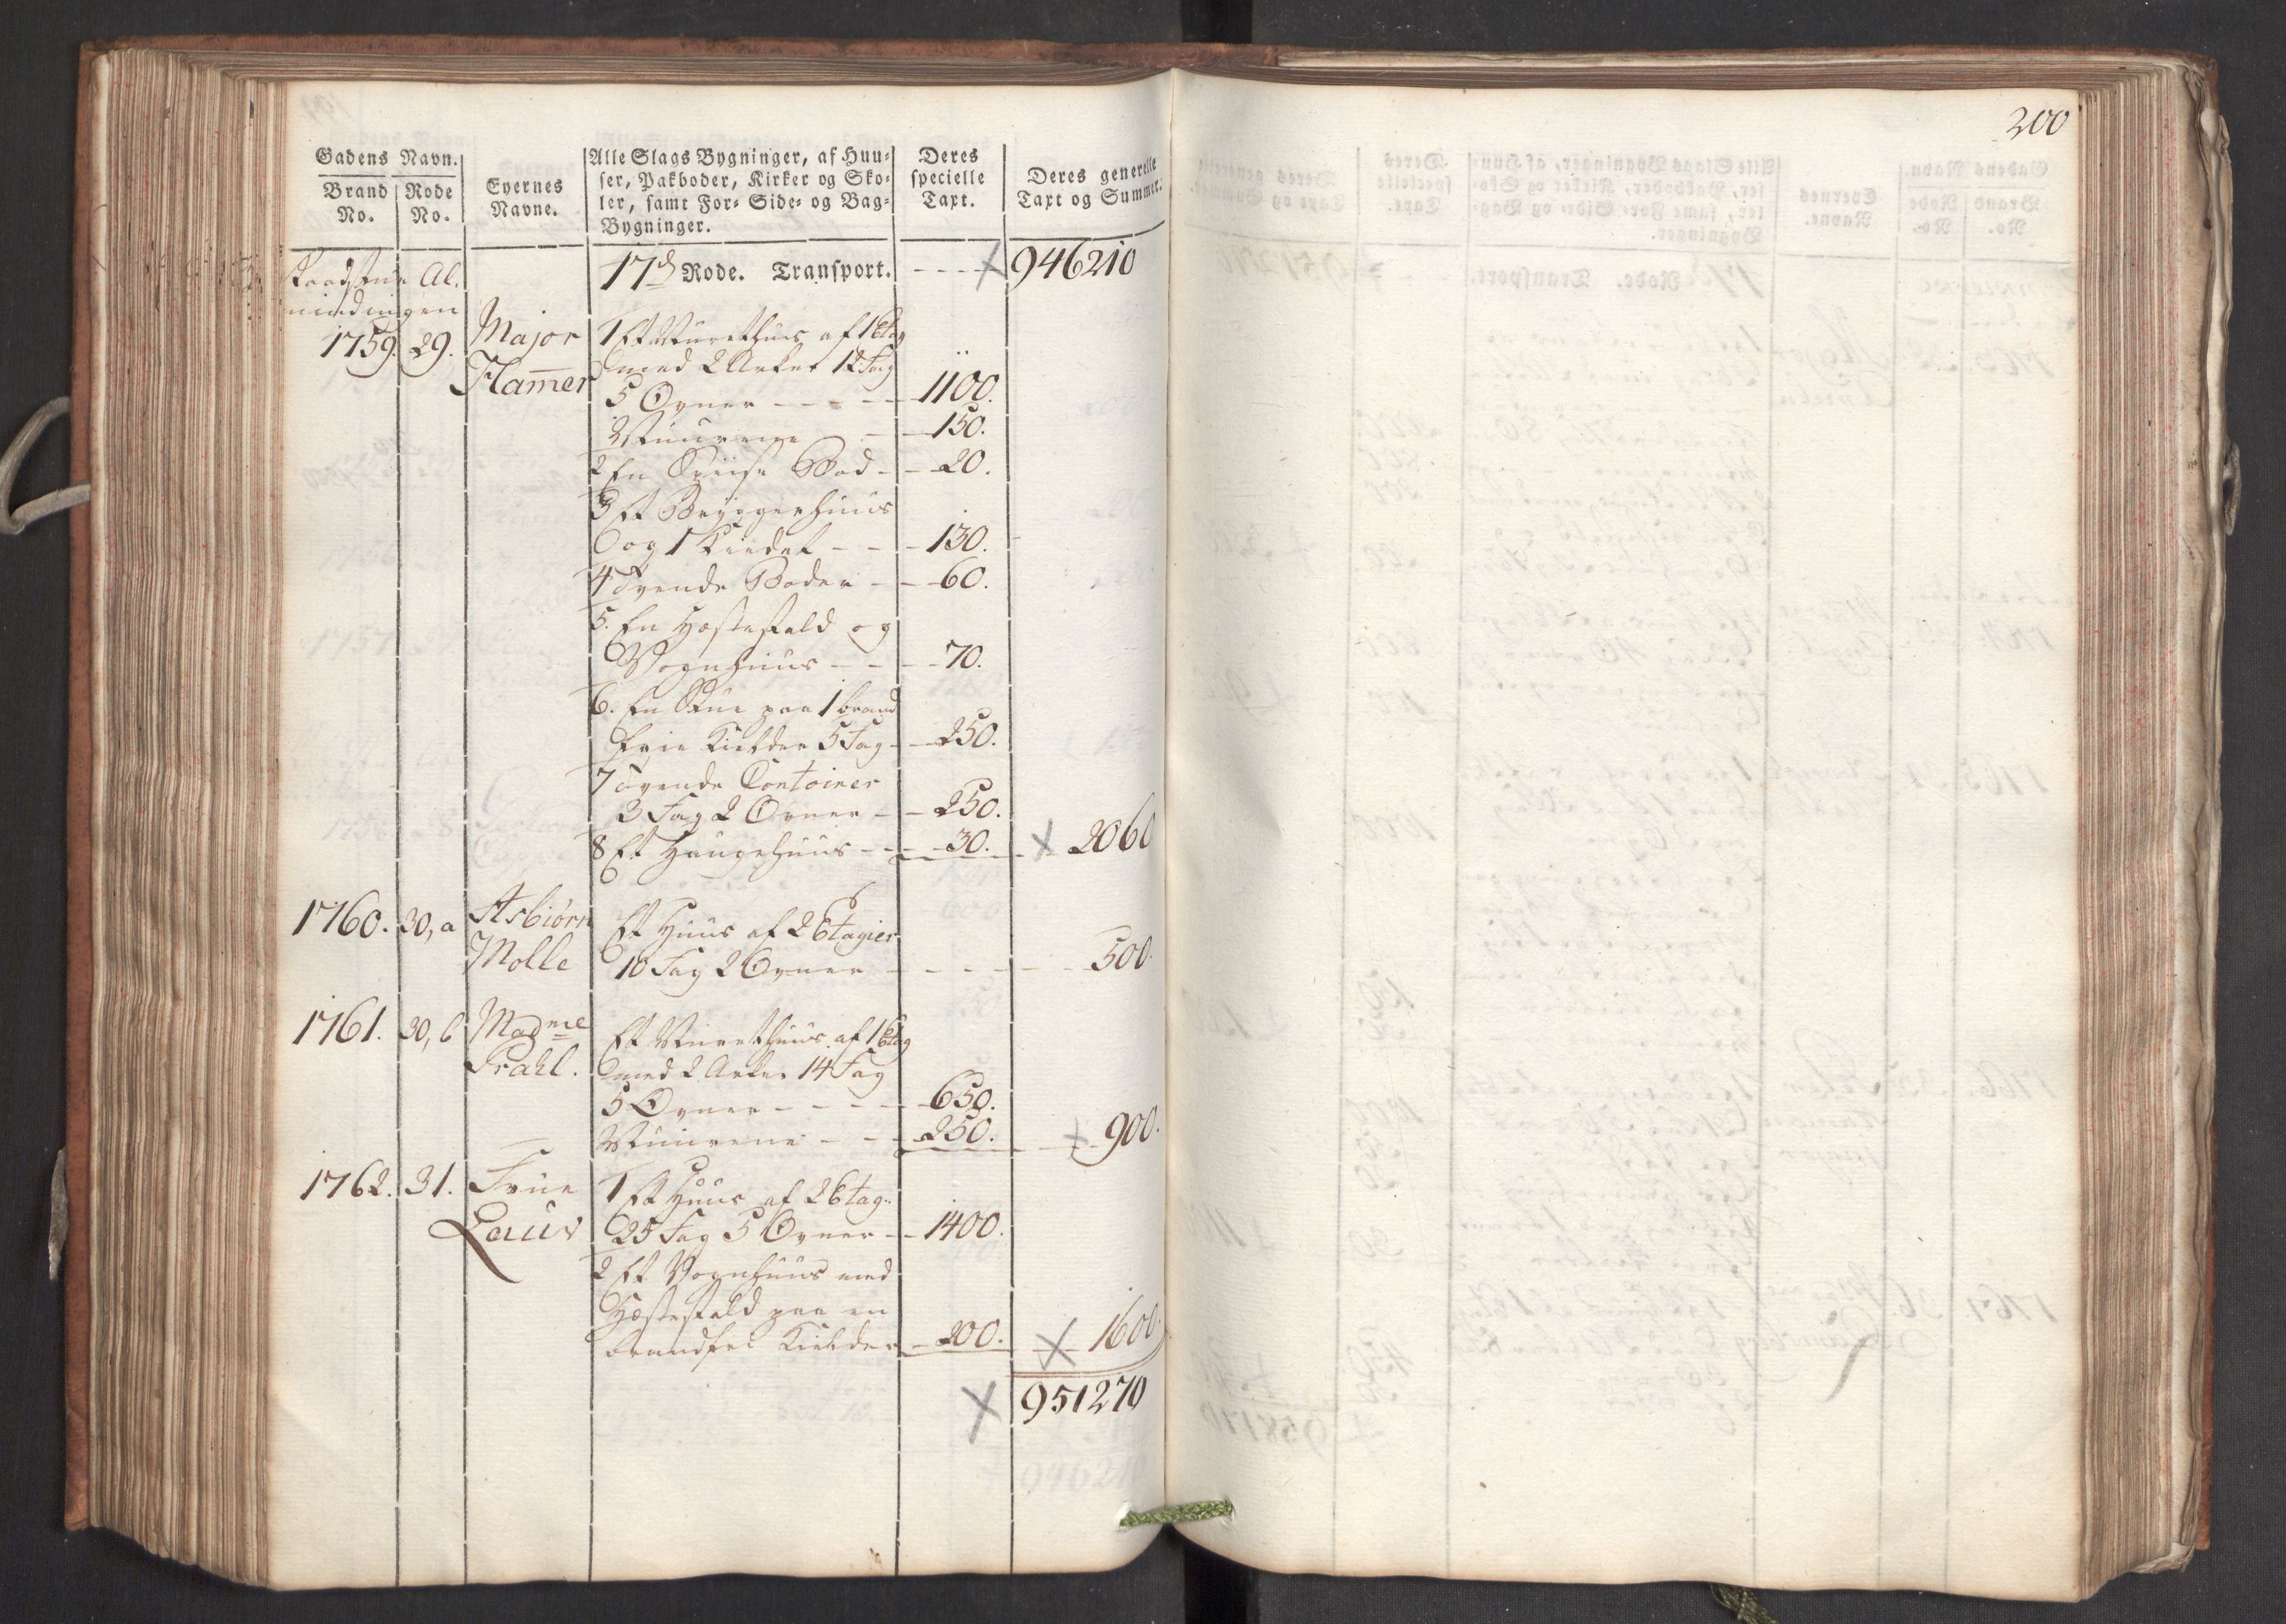 200
Gadens Navn.
Brand No.
Rode No.
Eyernes Navne.
Alle Slags Bygninger, af Huu-
ser, Pakboder, Kirker og Sko-
ler, samt For- Side- og Bag-
Bygninger.
Deres
specielle
Taxt.
Deres generelle
Taxt og Summer.
17d Rode. Transport. 946210
Al-
mindingen
1759. 29. Major Ham̅er
1 Et Muurethuus af 1 Etag
med 2 Arker 12 Fag
5 Ovner 1100.
Muurene 150.
2 En Bod 20.
3 Et Bryggerhuus
og 1 130.
4 Tvende Boder 60.
5. En Hæstestald og
Vognhuus 70.
6. En Stue paa 1 brand
frie Kielder 5 Fag 250.
7 Tvende Contoirer
3 Fag 2 Ovner 250.
8 Et Haugehuus 30. 2060
1760. 30, a Asbiørn Molle
Et Huus af 2 Etagier
10 Fag 2 Ovner 500.
1761. 30, b Madme Prahl.
Et Muurethuus af 1 Etag
med 2 Arker 14 Fag
5 Ovner 650.
Muurene 250. 900.
1762. 31. Frue
1 Et Huus af 2 Etag.
25 Fag 5 Ovner 1400.
2 Et Vognhuus med
Hæstestald paa en
brandfri Kielder 200. 1600.
951270